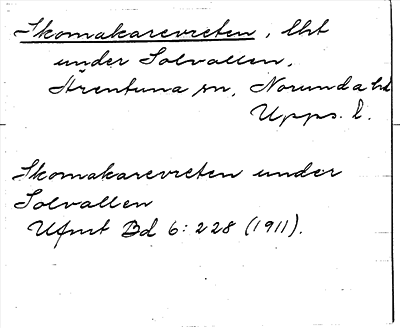 Skomakarevreten, lht
under Solvallen,
Ärentuna sn, Norunda hd
Upps. l.
Skomakarevreten under
Solvallen
Ufmt Bd 6: 228 (1911).